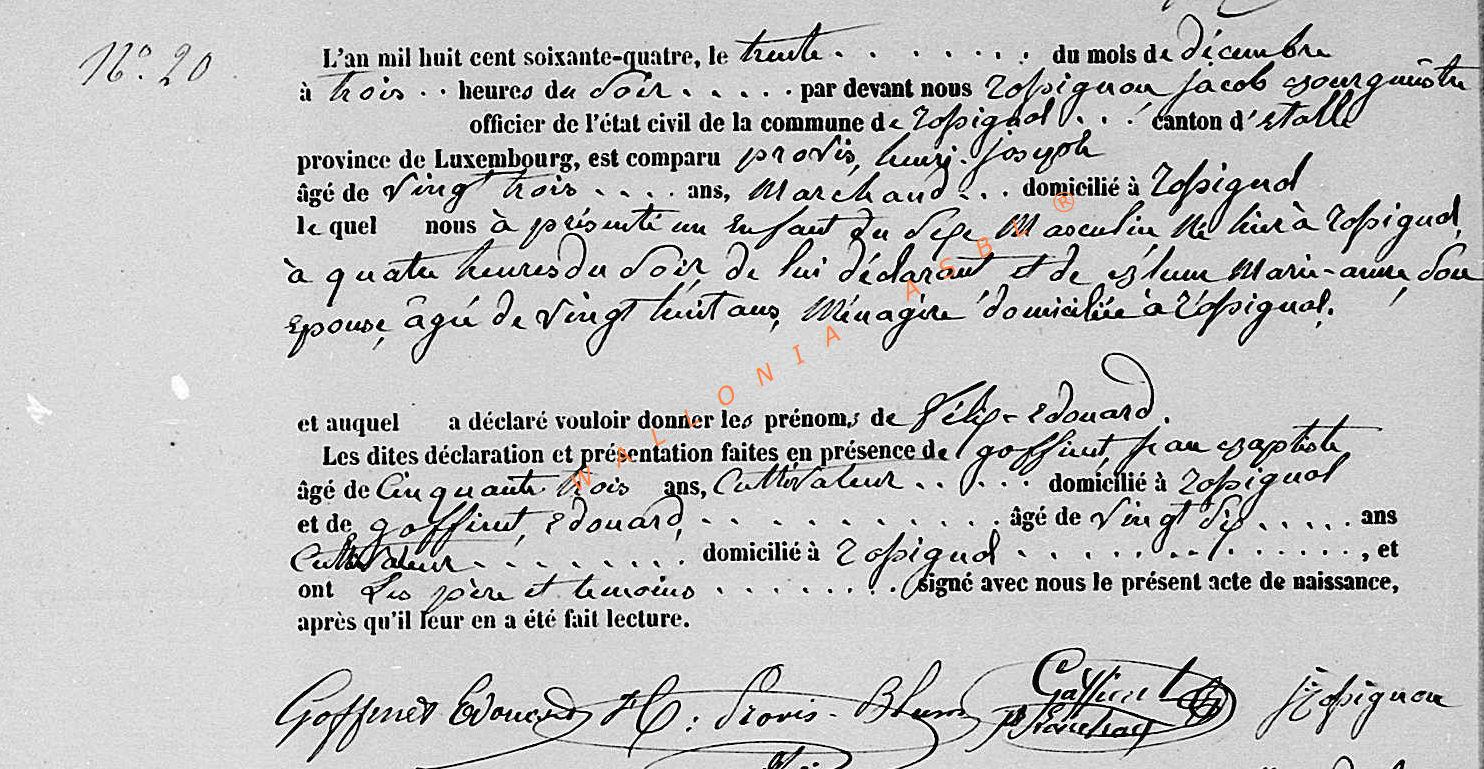 N°. 20
L'an mil huit cent soixante-quatre, le trente . . . . . . . du mois de décembre
à trois . . heures du soir . . . . . par devant nous Rossignon Jacob Bourgmestre
officier de l'état civil de la commune de Rossignol . . . canton d'Etalle
province de Luxembourg, est comparu provis, henri-Joseph
âgé de vingt trois . . . . ans, Marchand . . . domicilié à Rossignol
le quel nous à présenté un Enfant du Sexe Masculin Né hier à Rossignol,
à quatre heures du soir de lui déclarant et de Blum Marie-anne, son
Epouse, âgée de vingt huit ans, Ménagère domiciliée à Rossignol.
et auquel a déclaré vouloir donner les prénoms de Félix-Edouard.
Les dites déclaration et présentation faites en présence de goffinet, jean Baptiste
âgé de Cinquante trois ans, Cultivateur . . . . . domicilié à Rossignol
et de goffinet, Edouard, . . . . . . . . . . . âgé de vingt six . . . . . ans
Cultivateur . . . . . . . . domicilié à Rossignol . . . . . . . . . . . . . , et
ont Les père et temoins . . . . . . . . signé avec nous le présent acte de naissance,
après qu'il leur en a été fait lecture.
Goffinet Edouard H : Provis - Blum Goffinet JRossignon
WALLONIA ASBL ®